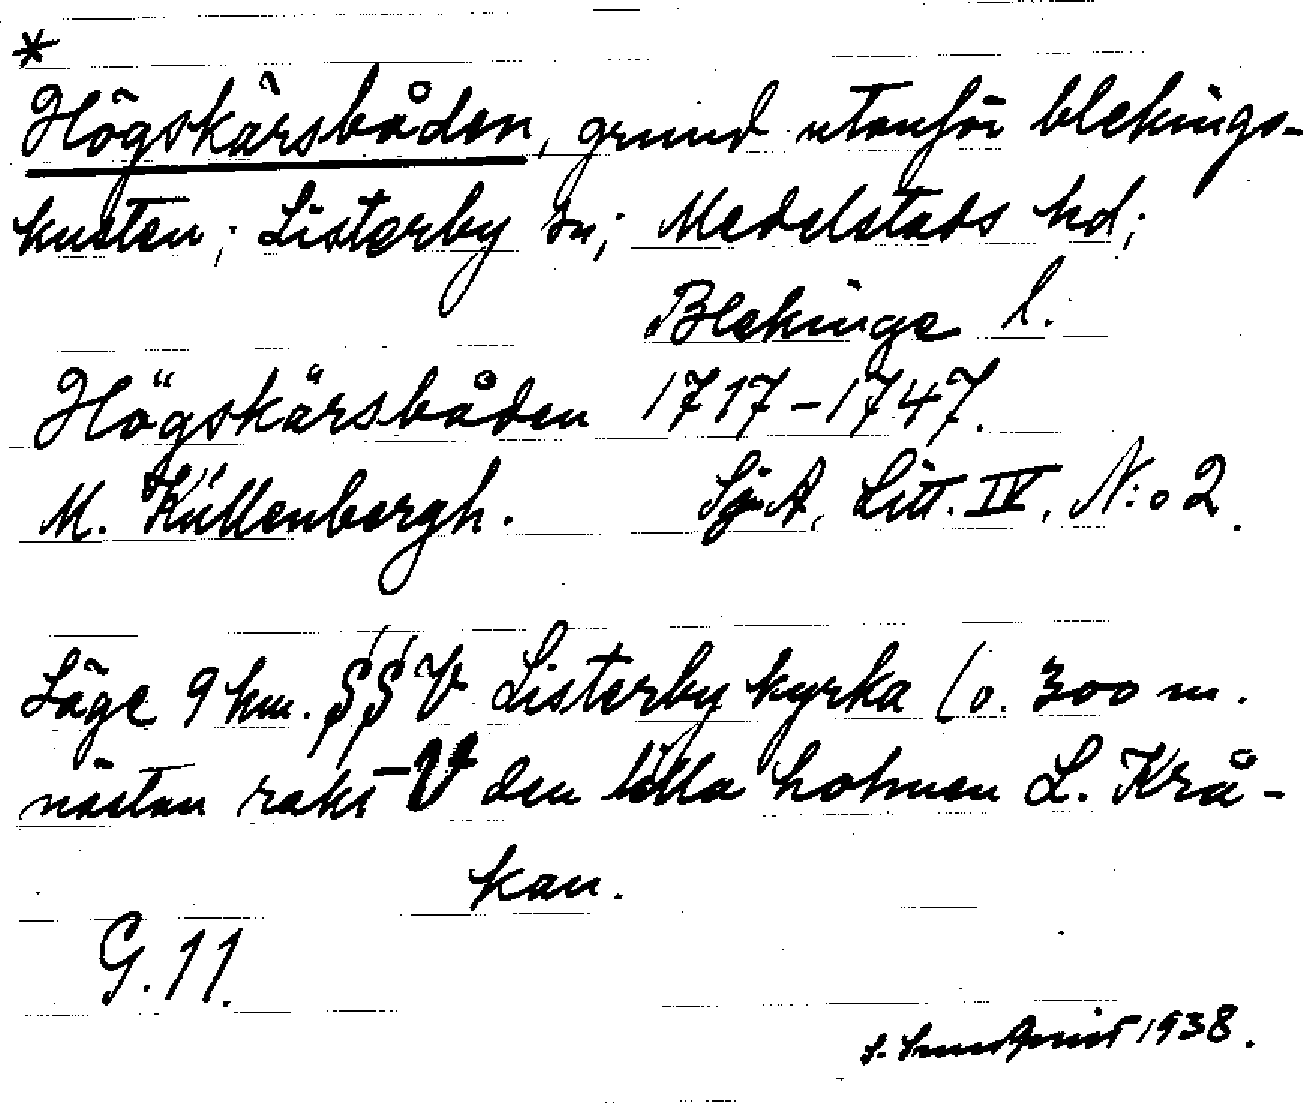 *
Högskärsbåden, grund utanför blekings-
kusten; Listerby sn; Medelstads hd;
Blekinge l.
Högskärsbåden 1717-1747.
M. Küllenbergh. Sj.A, Litt. IV, N:o 2.
Läge 9 km. SSV Listerby kyrka (o. 300 m.
nästan rakt V den lilla holmen L. Krå-
kan.
G. 11.
1938.